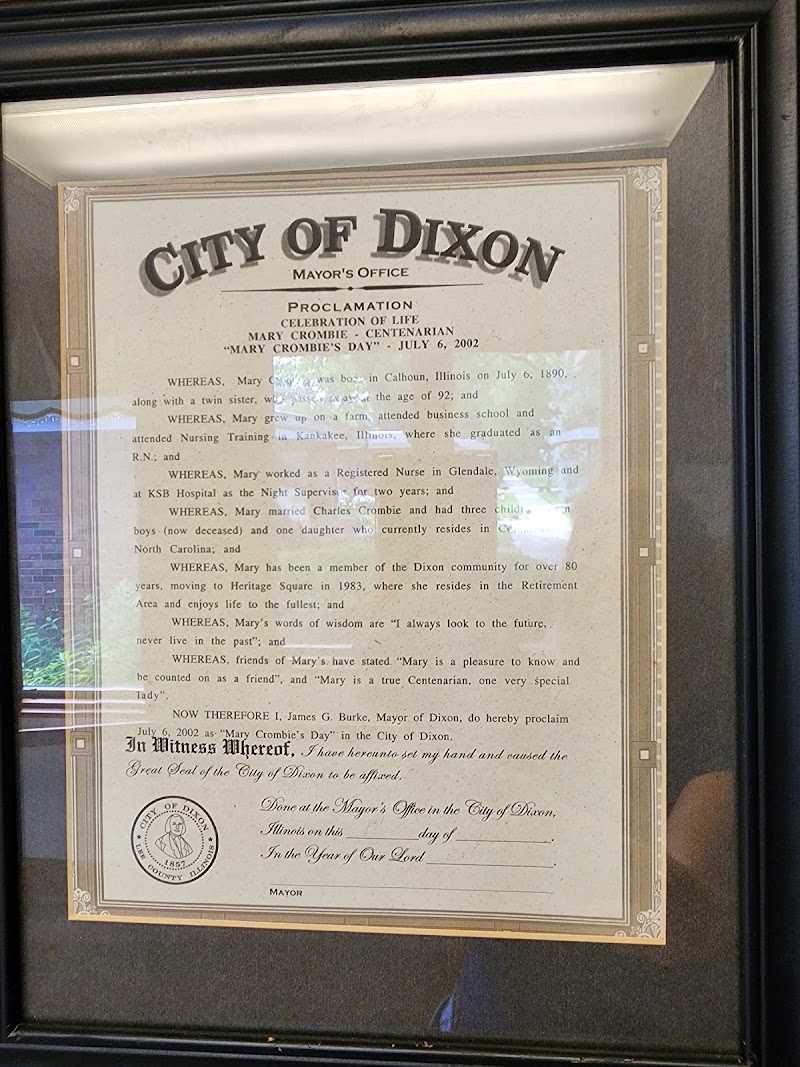 CITY OF DIXON
MAYOR'S OFFICE
PROCLAMATION
CELEBRATION OF LIFE
MARY CROMBIE - CENTENARIAN
"MARY CROMBIE'S DAY" - JULY 6, 2002
WHEREAS, Mary was born in Calhoun, Illinois on July 6, 1890,
along with a twin sister, who passed away at the age of 92; and
WHEREAS, Mary grew up on a farm, attended business school and
attended Nursing Training in Kankakee, Illinois, where she graduated as an
R.N.; and
WHEREAS, Mary worked as a Registered Nurse in Glendale, Wyoming and
at KSB Hospital as the Night Supervisor for two years; and
WHEREAS, Mary married Charles Crombie and had three
boys (now deceased) and one daughter who currently resides in
North Carolina; and
WHEREAS, Mary has been a member of the Dixon community for over 80
years, moving to Heritage Square in 1983, where she resides in the Retirement
Area and enjoys life to the fullest; and
WHEREAS, Mary's words of wisdom are "I always look to the future,
never live in the past"; and
WHEREAS, friends of Mary's have stated "Mary is a pleasure to know and
be counted on as a friend", and "Mary is a true Centenarian, one very special
lady".
NOW THEREFORE I, James G. Burke, Mayor of Dixon, do hereby proclaim
July 6, 2002 as "Mary Crombie's Day" in the City of Dixon.
In Witness Whereof, I have hereunto set my hand and caused the
Great Seal of the City of Dixon to be affixed.
Done at the Mayor's Office in the City of Dixon,
Illinois on this __________ day of ______________.
In the Year of Our Lord __________________.
MAYOR
CITY OF DIXON
1857
LEE COUNTY ILLINOIS